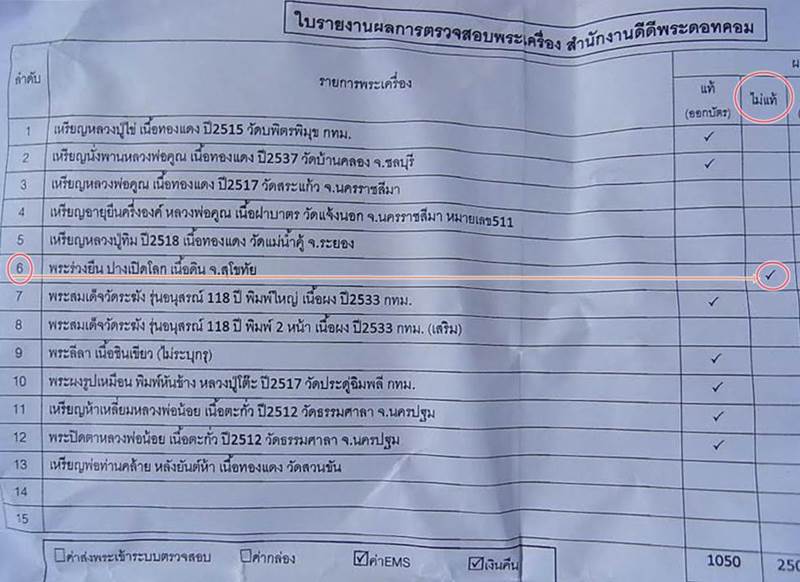 ใบรายงานผลการตรวจสอบพระเครื่อง สำนักงานดีดีพระดอทคอม
ลำดับ รายการพระเครื่อง แท้ (ออกบัตร) ไม่แท้
1 เหรียญหลวงปู่ไข่ เนื้อทองแดง ปี2515 วัดบพิตรพิมุข กทม. ✓
2 เหรียญนั่งพานหลวงพ่อคูณ เนื้อทองแดง ปี2537 วัดบ้านคลอง จ.ชลบุรี ✓
3 เหรียญหลวงพ่อคูณ เนื้อทองแดง ปี2517 วัดสระแก้ว จ.นครราชสีมา
4 เหรียญอายุยืนครึ่งองค์ หลวงพ่อคูณ เนื้อฝาบาตร วัดแจ้งนอก จ.นครราชสีมา หมายเลข511
5 เหรียญหลวงปู่ทิม ปี2518 เนื้อทองแดง วัดแม่น้ำคู้ จ.ระยอง
6 พระร่วงยืน ปางเปิดโลก เนื้อดิน จ.สุโขทัย ✓
7 พระสมเด็จวัดระฆัง รุ่นอนุสรณ์ 118 ปี พิมพ์ใหญ่ เนื้อผง ปี2533 กทม. ✓
8 พระสมเด็จวัดระฆัง รุ่นอนุสรณ์ 118 ปี พิมพ์ 2 หน้า เนื้อผง ปี2533 กทม. (เสริม)
9 พระลีลา เนื้อชินเขียว (ไม่ระบุกรุ) ✓
10 พระผงรูปเหมือน พิมพ์หันข้าง หลวงปู่โต๊ะ ปี2517 วัดประดู่ฉิมพลี กทม. ✓
11 เหรียญห้าเหลี่ยมหลวงพ่อน้อย เนื้อตะกั่ว ปี2512 วัดธรรมศาลา จ.นครปฐม ✓
12 พระปิดตาหลวงพ่อน้อย เนื้อตะกั่ว ปี2512 วัดธรรมศาลา จ.นครปฐม ✓
13 เหรียญพ่อท่านคล้าย หลังยันต์ห้า เนื้อทองแดง วัดสวนขัน
14
15
☐ค่าส่งพระเข้าระบบตรวจสอบ ☐ค่ากล่อง ☑ค่าEMS ☑เงินคืน 1050